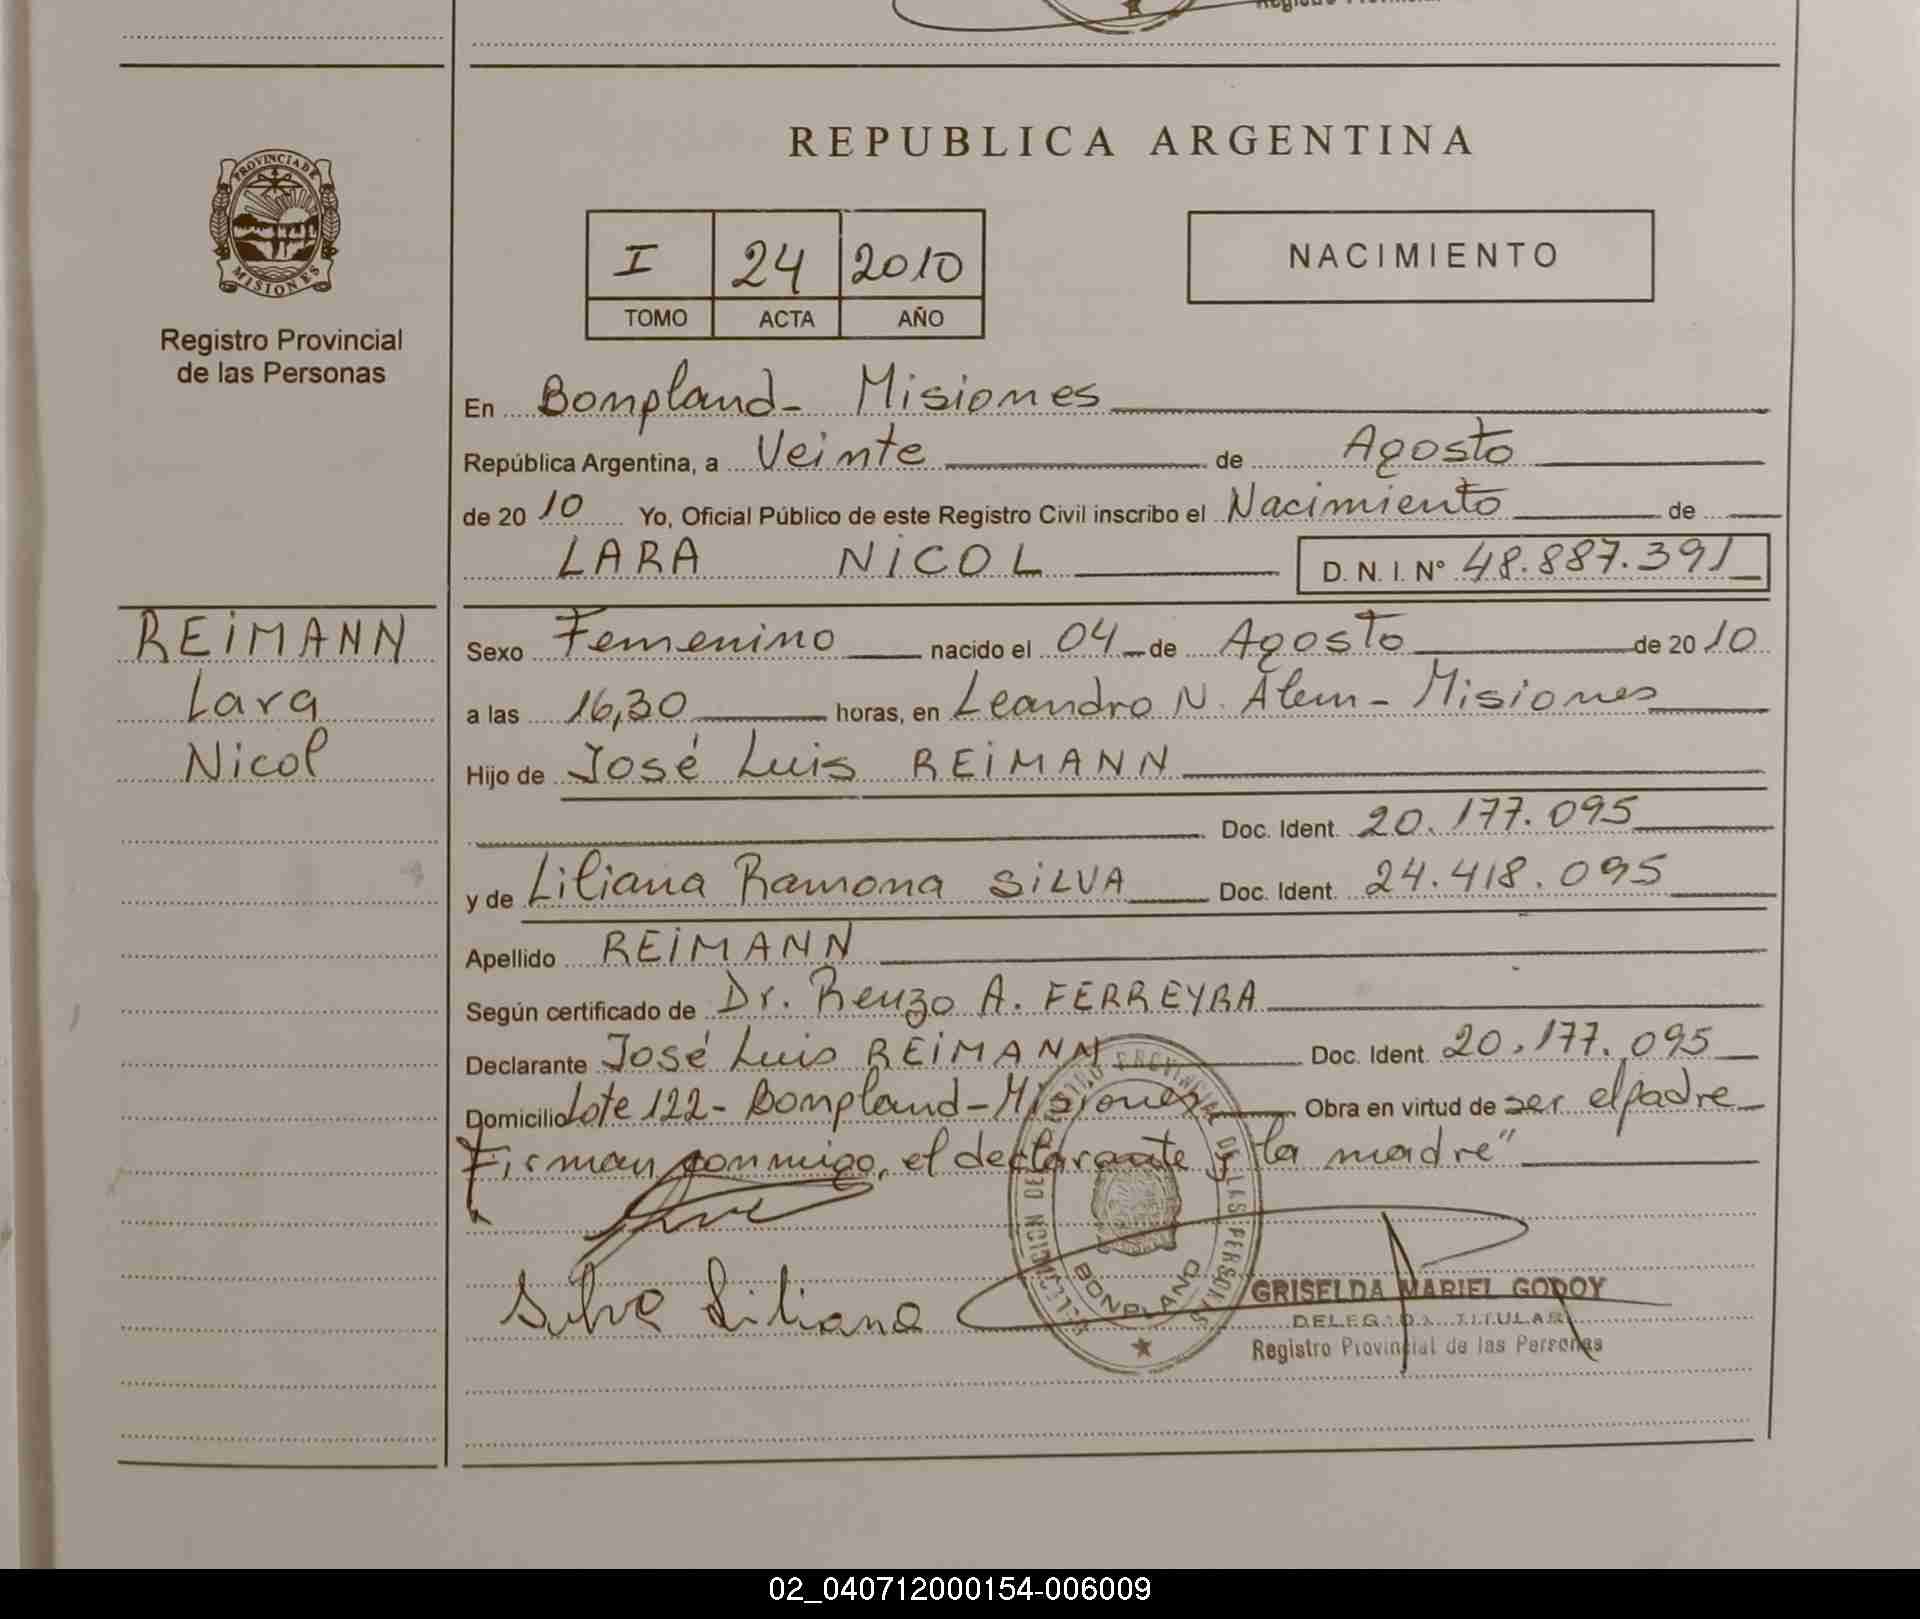 REPUBLICA ARGENTINA
PROVINCIA DE
MISIONES
Registro Provincial
de las Personas
I 24 2010
TOMO ACTA AÑO
NACIMIENTO
En Bonpland - Misiones
República Argentina, a Veinte de Agosto
de 2010 Yo, Oficial Público de este Registro Civil inscribo el Nacimiento de
LARA NICOL D. N. I. N° 48.887.391
REIMANN
Lara
Nicol
Sexo Femenino nacido el 04 de Agosto de 2010
a las 16,30 horas, en Leandro N. Alem - Misiones
Hijo de José Luis REIMANN
Doc. Ident. 20.177.095
y de Liliana Ramona SILVA Doc. Ident. 24.418.095
Apellido REIMANN
Según certificado de Dr. Renzo A. FERREYRA
Declarante José Luis REIMANN Doc. Ident. 20.177.095
Domicilio Lote 122 - Bonpland - Misiones Obra en virtud de ser el padre
Firman conmigo, el declarante y "la madre"
Silva Liliana
BONPLAND
GRISELDA MARIEL GODOY
DELEGADA TITULAR
Registro Provincial de las Personas
02_040712000154-006009